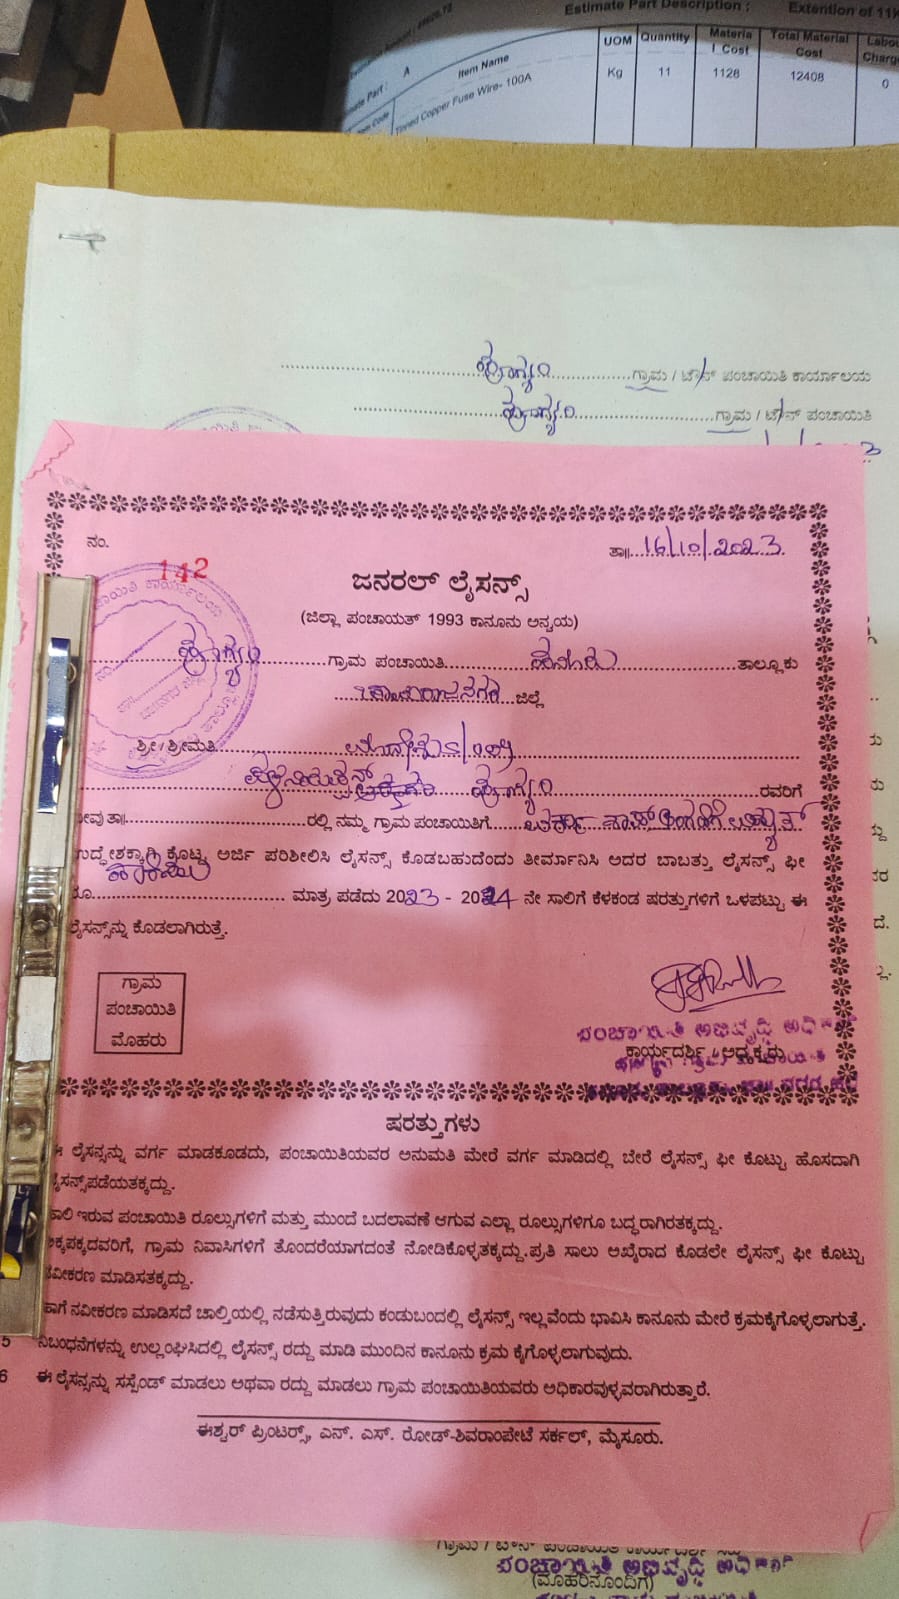 Estimate Part Description : Extention of 11K
Part : A
Item Name UOM Quantity Materia l Cost Total Material Cost Labou Charge
Tinned Copper Fuse Wire- 100A Kg 11 1128 12408 0
ಗ್ರಾಮ / ಟೌನ್ ಪಂಚಾಯಿತಿ ಕಾರ್ಯಾಲಯ
ಗ್ರಾಮ / ಟೌನ್ ಪಂಚಾಯಿತಿ
ನಂ. 142 ತಾ॥ 16/10/2023
ಜನರಲ್ ಲೈಸನ್ಸ್
(ಜಿಲ್ಲಾ ಪಂಚಾಯತ್ 1993 ಕಾನೂನು ಅನ್ವಯ)
ಗ್ರಾಮ ಪಂಚಾಯಿತಿ ಹನೂರು ತಾಲ್ಲೂಕು
ಚಾಮರಾಜನಗರ ಜಿಲ್ಲೆ
ಶ್ರೀ / ಶ್ರೀಮತಿ
ರವರಿಗೆ
ನೀವು ತಾ॥ ರಲ್ಲಿ ನಮ್ಮ ಗ್ರಾಮ ಪಂಚಾಯಿತಿಗೆ
ಉದ್ದೇಶಕ್ಕಾಗಿ ಕೊಟ್ಟ ಅರ್ಜಿ ಪರಿಶೀಲಿಸಿ ಲೈಸನ್ಸ್ ಕೊಡಬಹುದೆಂದು ತೀರ್ಮಾನಿಸಿ ಅದರ ಬಾಬತ್ತು ಲೈಸನ್ಸ್ ಫೀ
ರೂ. ಮಾತ್ರ ಪಡೆದು 2023 - 2024 ನೇ ಸಾಲಿಗೆ ಕೆಳಕಂಡ ಷರತ್ತುಗಳಿಗೆ ಒಳಪಟ್ಟು ಈ
ಲೈಸನ್ಸ್‌ನ್ನು ಕೊಡಲಾಗಿರುತ್ತೆ.
ಗ್ರಾಮ
ಪಂಚಾಯಿತಿ
ಮೊಹರು
ಪಂಚಾಯಿತಿ ಅಭಿವೃದ್ಧಿ ಅಧಿಕಾರಿ
ಕಾರ್ಯದರ್ಶಿ / ಅಧ್ಯಕ್ಷರು
ಷರತ್ತುಗಳು
ಈ ಲೈಸನ್ಸನ್ನು ವರ್ಗ ಮಾಡಕೂಡದು, ಪಂಚಾಯಿತಿಯವರ ಅನುಮತಿ ಮೇರೆ ವರ್ಗ ಮಾಡಿದಲ್ಲಿ ಬೇರೆ ಲೈಸನ್ಸ್ ಫೀ ಕೊಟ್ಟು ಹೊಸದಾಗಿ
ಲೈಸನ್ಸ್‌ಪಡೆಯತಕ್ಕದ್ದು.
ಹಾಲಿ ಇರುವ ಪಂಚಾಯಿತಿ ರೂಲ್ಸುಗಳಿಗೆ ಮತ್ತು ಮುಂದೆ ಬದಲಾವಣೆ ಆಗುವ ಎಲ್ಲಾ ರೂಲ್ಸುಗಳಿಗೂ ಬದ್ಧರಾಗಿರತಕ್ಕದ್ದು.
ಅಕ್ಕಪಕ್ಕದವರಿಗೆ, ಗ್ರಾಮ ನಿವಾಸಿಗಳಿಗೆ ತೊಂದರೆಯಾಗದಂತೆ ನೋಡಿಕೊಳ್ಳತಕ್ಕದ್ದು.ಪ್ರತಿ ಸಾಲು ಅಖೈರಾದ ಕೂಡಲೇ ಲೈಸನ್ಸ್ ಫೀ ಕೊಟ್ಟು
ನವೀಕರಣ ಮಾಡಿಸತಕ್ಕದ್ದು.
ಹಾಗೆ ನವೀಕರಣ ಮಾಡಿಸದೆ ಚಾಲ್ತಿಯಲ್ಲಿ ನಡೆಸುತ್ತಿರುವುದು ಕಂಡುಬಂದಲ್ಲಿ ಲೈಸನ್ಸ್ ಇಲ್ಲವೆಂದು ಭಾವಿಸಿ ಕಾನೂನು ಮೇರೆ ಕ್ರಮಕೈಗೊಳ್ಳಲಾಗುತ್ತೆ.
5 ನಿಬಂಧನೆಗಳನ್ನು ಉಲ್ಲಂಘಿಸಿದಲ್ಲಿ ಲೈಸನ್ಸ್ ರದ್ದು ಮಾಡಿ ಮುಂದಿನ ಕಾನೂನು ಕ್ರಮ ಕೈಗೊಳ್ಳಲಾಗುವುದು.
6 ಈ ಲೈಸನ್ಸನ್ನು ಸಸ್ಪೆಂಡ್ ಮಾಡಲು ಅಥವಾ ರದ್ದು ಮಾಡಲು ಗ್ರಾಮ ಪಂಚಾಯಿತಿಯವರು ಅಧಿಕಾರವುಳ್ಳವರಾಗಿರುತ್ತಾರೆ.
ಈಶ್ವರ್ ಪ್ರಿಂಟರ್ಸ್, ಎನ್. ಎಸ್. ರೋಡ್-ಶಿವರಾಂಪೇಟೆ ಸರ್ಕಲ್, ಮೈಸೂರು.
ಪಂಚಾಯಿತಿ ಅಭಿವೃದ್ಧಿ ಅಧಿಕಾರಿ
(ಮೊಹರಿನೊಂದಿಗೆ)